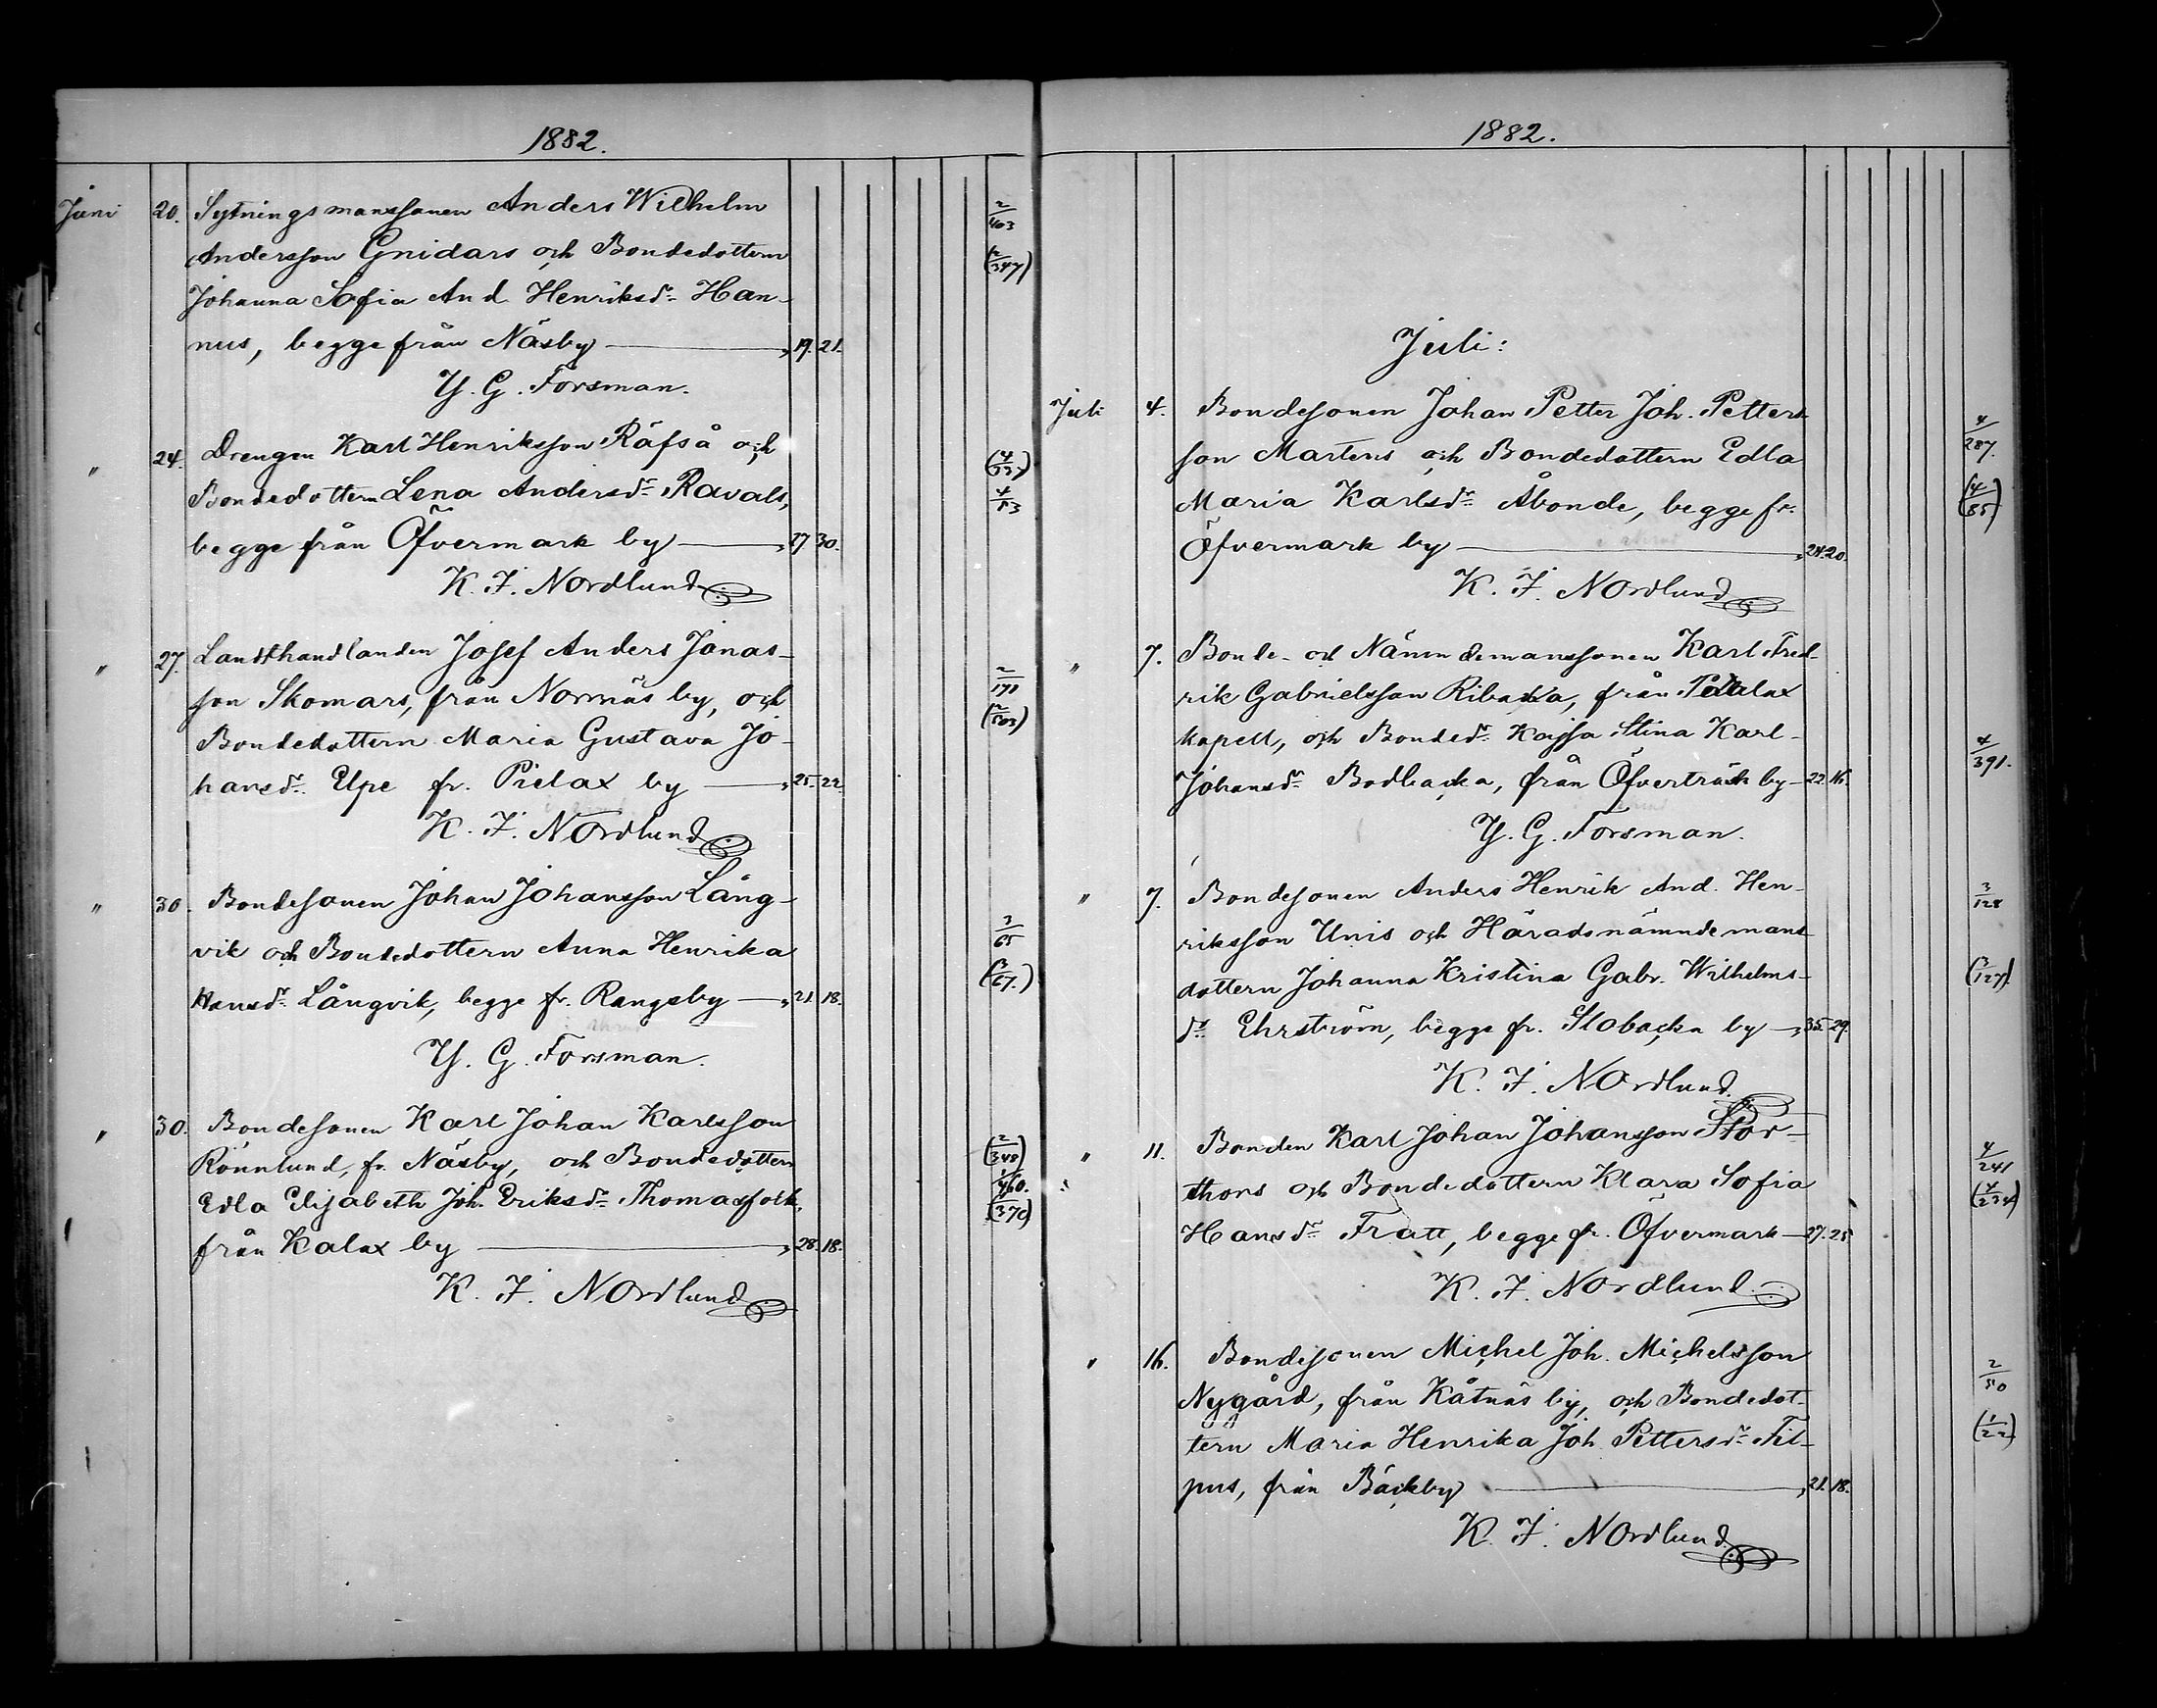 1882.
Juni 20. Sytningsmanssonen Anders Wilhelm 2/403
Andersson Gnidars och Bondedottern (2/347)
Johanna Sofia And. Henriksdr Han-
nus, begge från Näsby — „ 19. 21.
Y. G. Forsman.
„ 24. Drengen Karl Henriksson Räfså och
Bondedottern Lena Andersdr Ravals, 4/53
begge från Öfvermark by — „ 27 30.
K. F. Nordlund
„ 27. Landthandlanden Josef Anders Jonas-
son Skomars, från Norrnäs by, och 2/191
Bondedottern Maria Gustava Jo-
hansdr Upe fr. Pielax by — „ 25. 22.
K. F. Nordlund
„ 30. Bondesonen Johan Johansson Lång-
vik och Bondedottern Anna Henrika 3/65
Hansdr Långvik, begge fr. Rangsby — „ 21. 18. (3/67.)
Y. G. Forsman.
„ 30. Bondesonen Karl Johan Karlsson
Rönnlund, fr. Näsby, och Bondedottern (2/348)
Edla Elisabeth Joh. Eriksdr Thomasfolk,
från Kalax by — „ 28. 18.
K. F. Nordlund
1882.
Juli:
Juli 4. Bondesonen Johan Petter Joh. Petters- 4/287.
son Martens och Bondedottern Edla
Maria Karlsdr Åbonde, begge fr. (4/85)
Öfvermark by — „ 24. 20.
K. F. Nordlund
„ 7. Bonde- och Nämndemanssonen Karl Fred-
rik Gabrielsson Ribacka, från Petalax
kapell, och Bondedr Kajsa Stina Karl- 4/391.
Johansdr Bodbacka, från Öfverträsk by — 22. 16.
Y. G. Forsman.
„ 7. Bondesonen Anders Henrik And. Hen- 3/128
riksson Unis och Häradsnämndemans
dottern Johanna Kristina Gabr. Wilhelms- (3/127)
dr Ehrström, begge fr. Slobacka by — „ 35. 29.
K. F. Nordlund.
„ 11. Bonden Karl Johan Johansson Stor- 4/241
thors och Bondedottern Klara Sofia (4/234)
Hansdr Fratt, begge fr. Öfvermark — 27. 25
K. F. Nordlund.
„ 16. Bondesonen Michel Joh. Michelsson 2/50
Nygård, från Kåtnäs by, och Bondedot-
tern Maria Henrika Joh. Pettersdr Fil- (1/22)
pus, från Bäckby — „ 21. 18.
K. F. Nordlund.